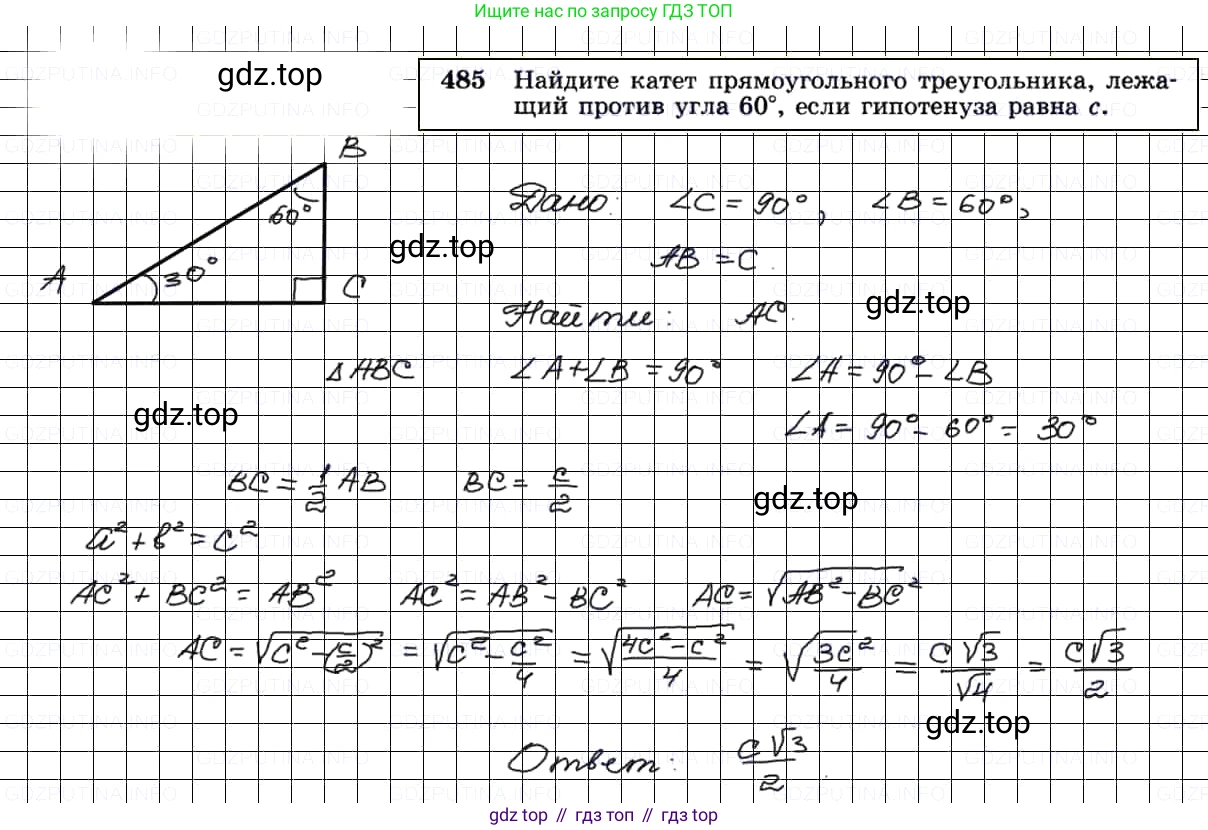 Ищите нас по запросу ГДЗ ТОП
gdz.top
485 Найдите катет прямоугольного треугольника, лежа-
щий против угла 60°, если гипотенуза равна c.
B
60°
A 30° C
Дано: ∠C = 90°, ∠B = 60°,
gdz.top
AB = C.
Найти: AC.
gdz.top
△ABC ∠A+∠B = 90° ∠A = 90° - ∠B
gdz.top
∠A = 90° - 60° = 30°
BC = 1/2 AB BC = c/2
gdz.top
a² + b² = c²
AC² + BC² = AB² AC² = AB² - BC² AC = √(AB² - BC²)
AC = √(c² - (c/2)²) = √(c² - c²/4) = √((4c² - c²)/4) = √(3c²/4) = c√3/√4 = c√3/2
gdz.top
Ответ: c√3/2.
gdz.top // гдз топ // гдз.top